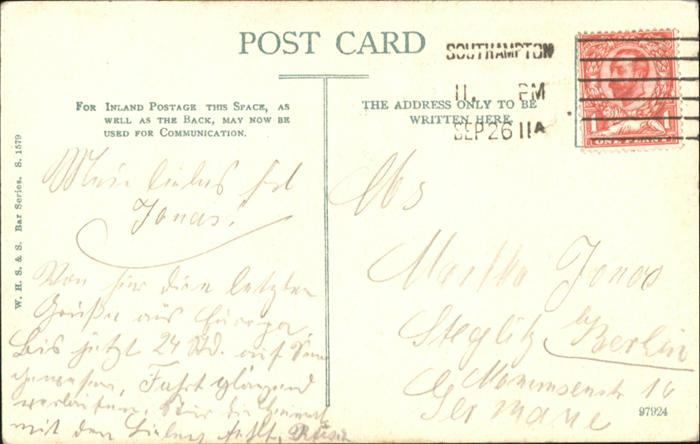 POST CARD
SOUTHAMPTON
11. PM
SEP 26 11A
ONE PENNY
FOR INLAND POSTAGE THIS SPACE, AS
WELL AS THE BACK, MAY NOW BE
USED FOR COMMUNICATION.
THE ADDRESS ONLY TO BE
WRITTEN HERE.
W. H. S. & S. Bar Series. S. 1579
Mein liebes Frl
Jonas!
Von hier die letzten
Grüße aus Europa.
Bis jetzt 24 Std. auf See
gewesen, Fahrt glänzend
verlaufen. Nur die
mit den Lieben fehlt.
Martha Jonas
Steglitz by Berlin
Mommsenstr 16
Germane
97924